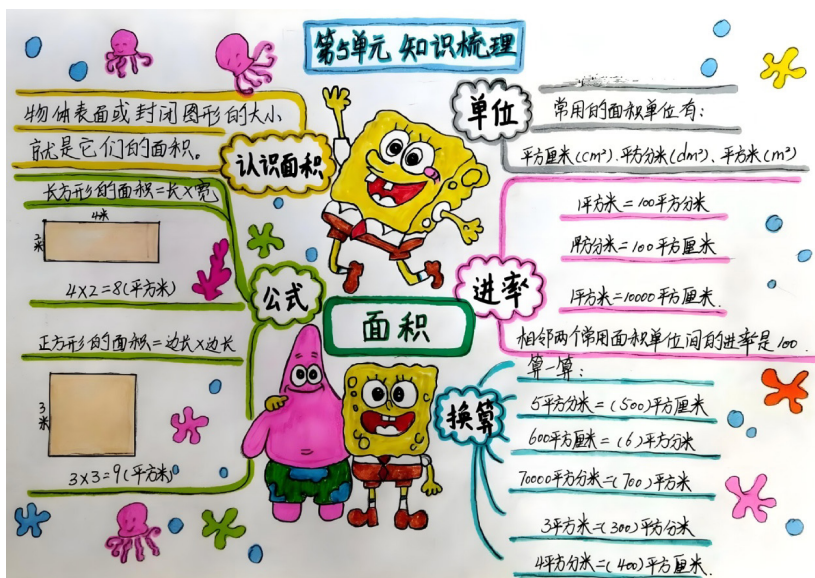 第5单元 知识梳理
物体表面或封闭图形的大小
就是它们的面积。
认识面积
长方形的面积=长×宽
4米
2米
4×2=8(平方米)
公式
正方形的面积=边长×边长
3米
3×3=9(平方米)
面积
单位
常用的面积单位有:
平方厘米(cm²)、平方分米(dm²)、平方米(m²)
进率
1平方米=100平方分米
1平方分米=100平方厘米
1平方米=10000平方厘米.
相邻两个常用面积单位间的进率是100.
换算
算一算:
5平方分米=(500)平方厘米
600平方厘米=(6)平方分米
70000平方分米=(700)平方米
3平方米=(300)平方分米
4平方分米=(400)平方厘米.